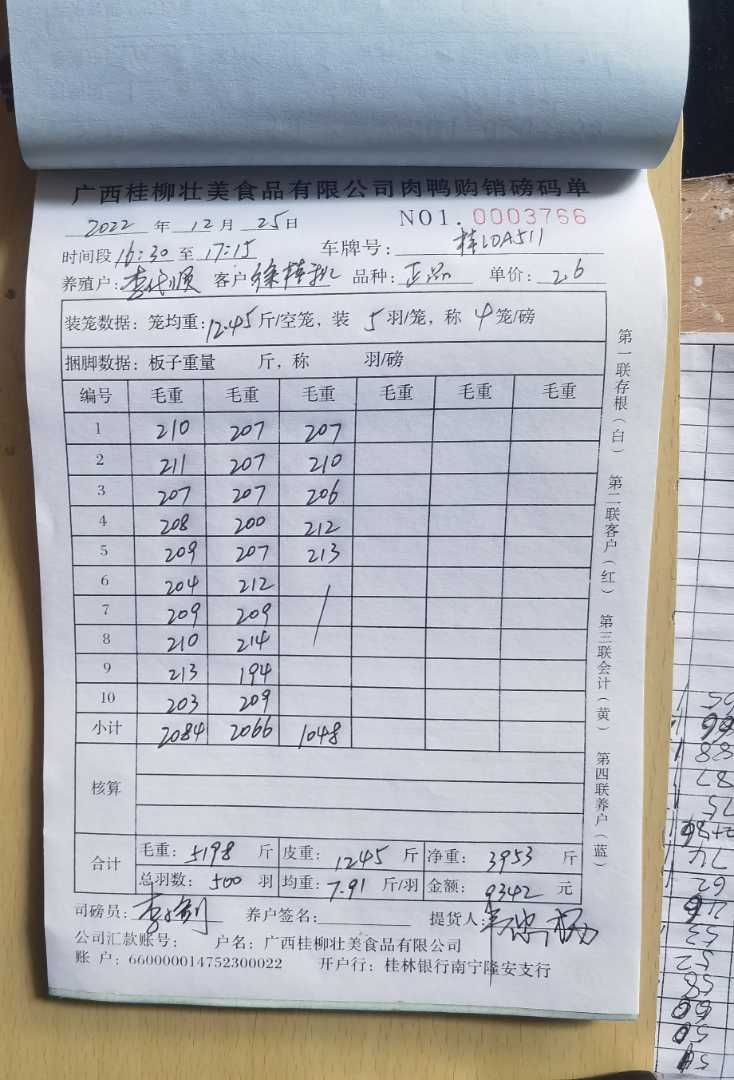 广西桂柳壮美食品有限公司肉鸭购销磅码单
2022 年 12 月 25 日 NO1. 0003766
时间段 16:30 至 17:15 车牌号: 桂LDA511
养殖户: 李代顺 客户 品种: 正品 单价: 2.6
装笼数据: 笼均重: 12.45 斤/空笼, 装 5 羽/笼, 称 4 笼/磅
捆脚数据: 板子重量 斤, 称 羽/磅
编号 毛重 毛重 毛重 毛重 毛重 毛重
1 210 207 207
2 211 207 210
3 207 207 206
4 208 200 212
5 209 207 213
6 204 212 /
7 209 209
8 210 214
9 213 194
10 203 209
小计 2084 2066 1048
核算
合计 毛重: 5198 斤 皮重: 1245 斤 净重: 3953 斤
总羽数: 500 羽 均重: 7.91 斤/羽 金额: 9342 元
司磅员: 养户签名: 提货人:
公司汇款账号: 户名: 广西桂柳壮美食品有限公司
账 户: 660000014752300022 开户行: 桂林银行南宁隆安支行
第一联存根(白) 第二联客户(红) 第三联会计(黄) 第四联养户(蓝)